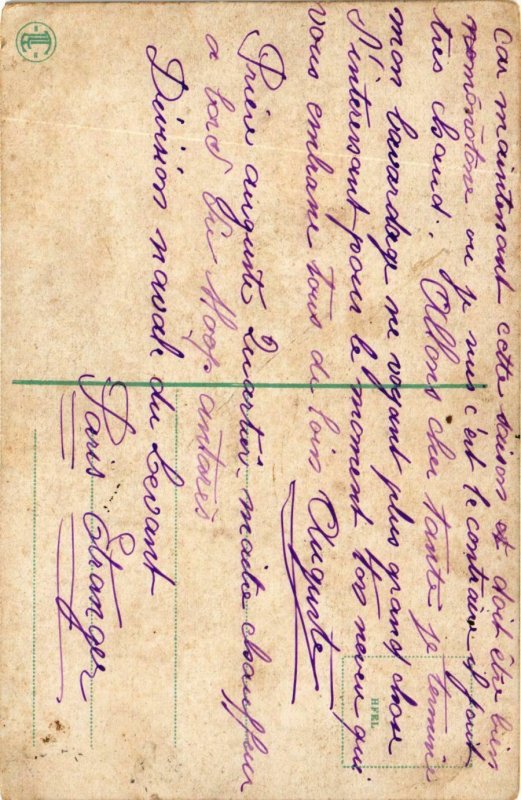 car maintenant cette saison et doit être bien
monotone ou je suis c'est le contraire il fait
très chaud. Allons cher tante je termine
mon bavardage ne voyant plus grand chose
d'interessant pour le moment ton neveu qui
vous embrasse tous de loin Auguste
Prière auguste Quartier-maître chauffeur
a bord du Hoop antares
Division navale du Levant
Paris Etranger
HFEL